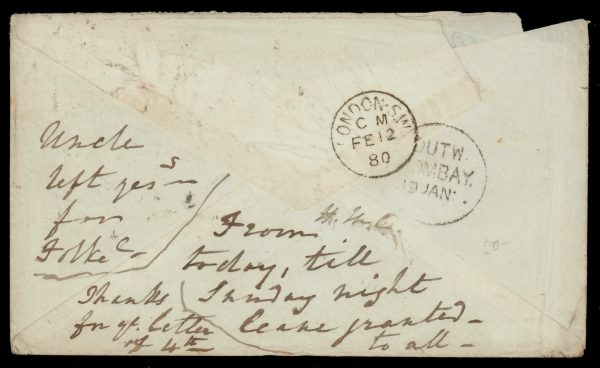 LONDON·S.W.
C M
FE 12
80
OUTW.
OMBAY.
19 JAN
Uncle
left yes
for
Folke
From
today, till
Sunday night
leave granted
to all
Thanks
for yr. letter
of 4th
50-